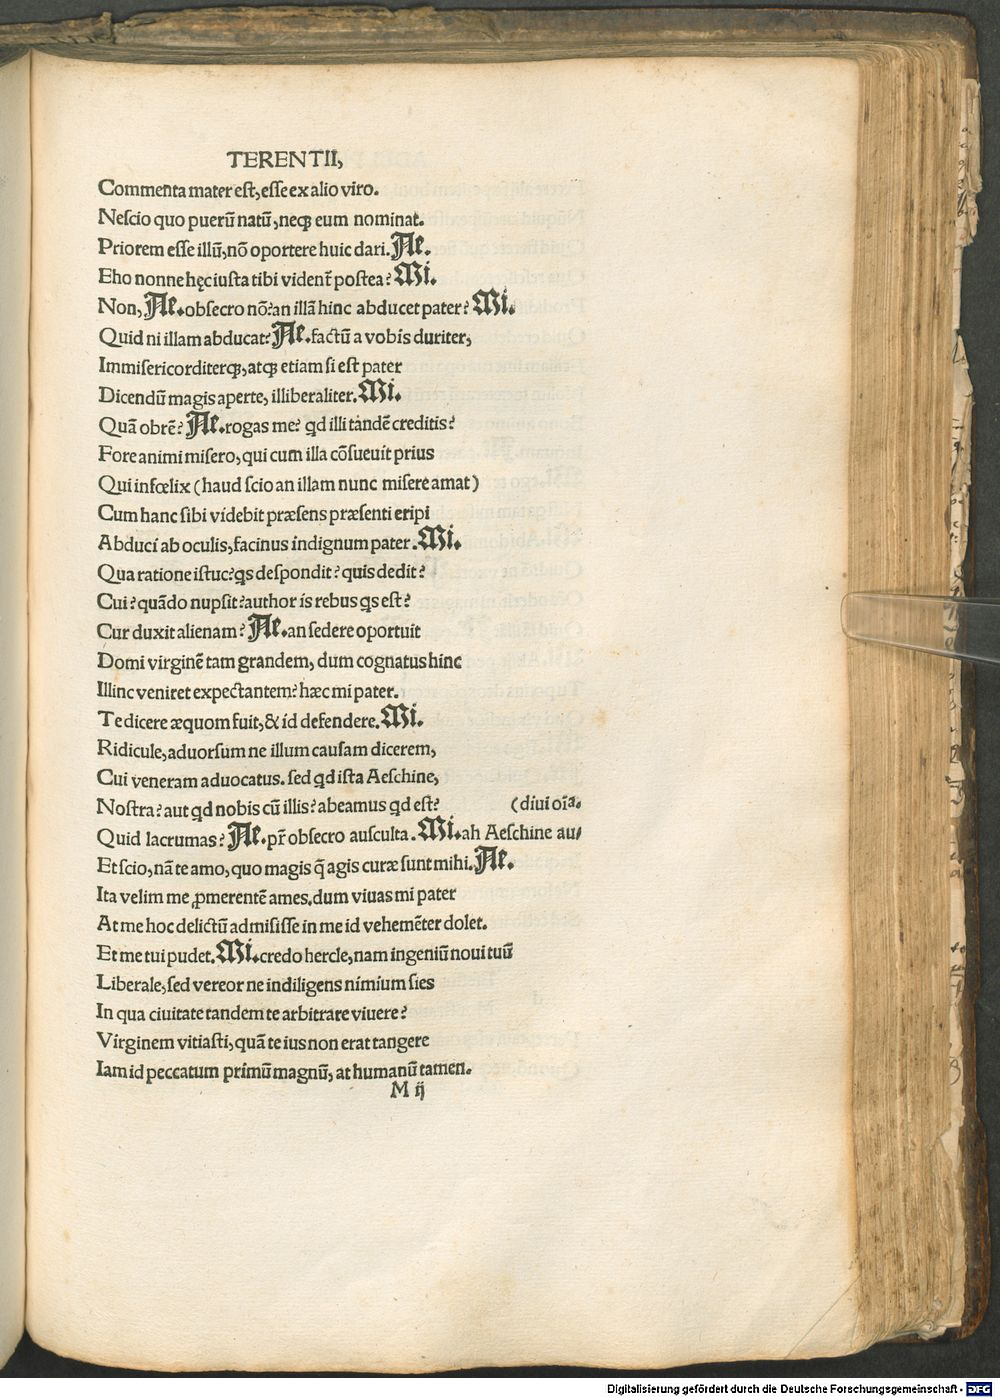 TERENTII,
Commenta mater est, esse ex alio viro.
Nescio quo puerũ natũ, neqꝫ eum nominat.
Priorem esse illũ, nõ oportere huic dari. Ae.
Eho nonne hęc iusta tibi videnť postea? Mi.
Non, Ae. obsecro nõ? an illã hinc abducet pater? Mi.
Quid ni illam abducat? Ae. factũ a vobis duriter,
Immisericorditerqꝫ, atqꝫ etiam si est pater
Dicendũ magis aperte, illiberaliter. Mi.
Quã obrẽ? Ae. rogas me? qd illi tandẽ creditis?
Fore animi misero, qui cum illa cõsueuit prius
Qui infœlix (haud scio an illam nunc misere amat)
Cum hanc sibi videbit præsens præsenti eripi
Abduci ab oculis, facinus indignum pater. Mi.
Qua ratione istuc? qs despondit? quis dedit?
Cui? quãdo nupsit? author is rebus qs est?
Cur duxit alienam? Ae. an sedere oportuit
Domi virginẽ tam grandem, dum cognatus hinc
Illinc veniret expectantem? hæc mi pater.
Te dicere æquom fuit, & id defendere. Mi.
Ridicule, aduorsum ne illum causam dicerem,
Cui veneram aduocatus. sed qd ista Aeschine,
Nostra? aut qd nobis cũ illis? abeamus qd est? (diui oĩa.
Quid lacrumas? Ae. pr̃ obsecro ausculta. Mi. ah Aeschine au/
Et scio, nã te amo, quo magis q̃ agis curæ sunt mihi. Ae.
Ita velim me ꝓmerentẽ ames. dum viuas mi pater
At me hoc delictũ admisisse in me id vehemẽter dolet.
Et me tui pudet. Mi. credo hercle, nam ingeniũ noui tuũ
Liberale, sed vereor ne indiligens nimium sies
In qua ciuitate tandem te arbitrare viuere?
Virginem vitiasti, quã te ius non erat tangere
Iam id peccatum primũ magnũ, at humanũ tamen.
M ij
Digitalisierung gefördert durch die Deutsche Forschungsgemeinschaft - DFG